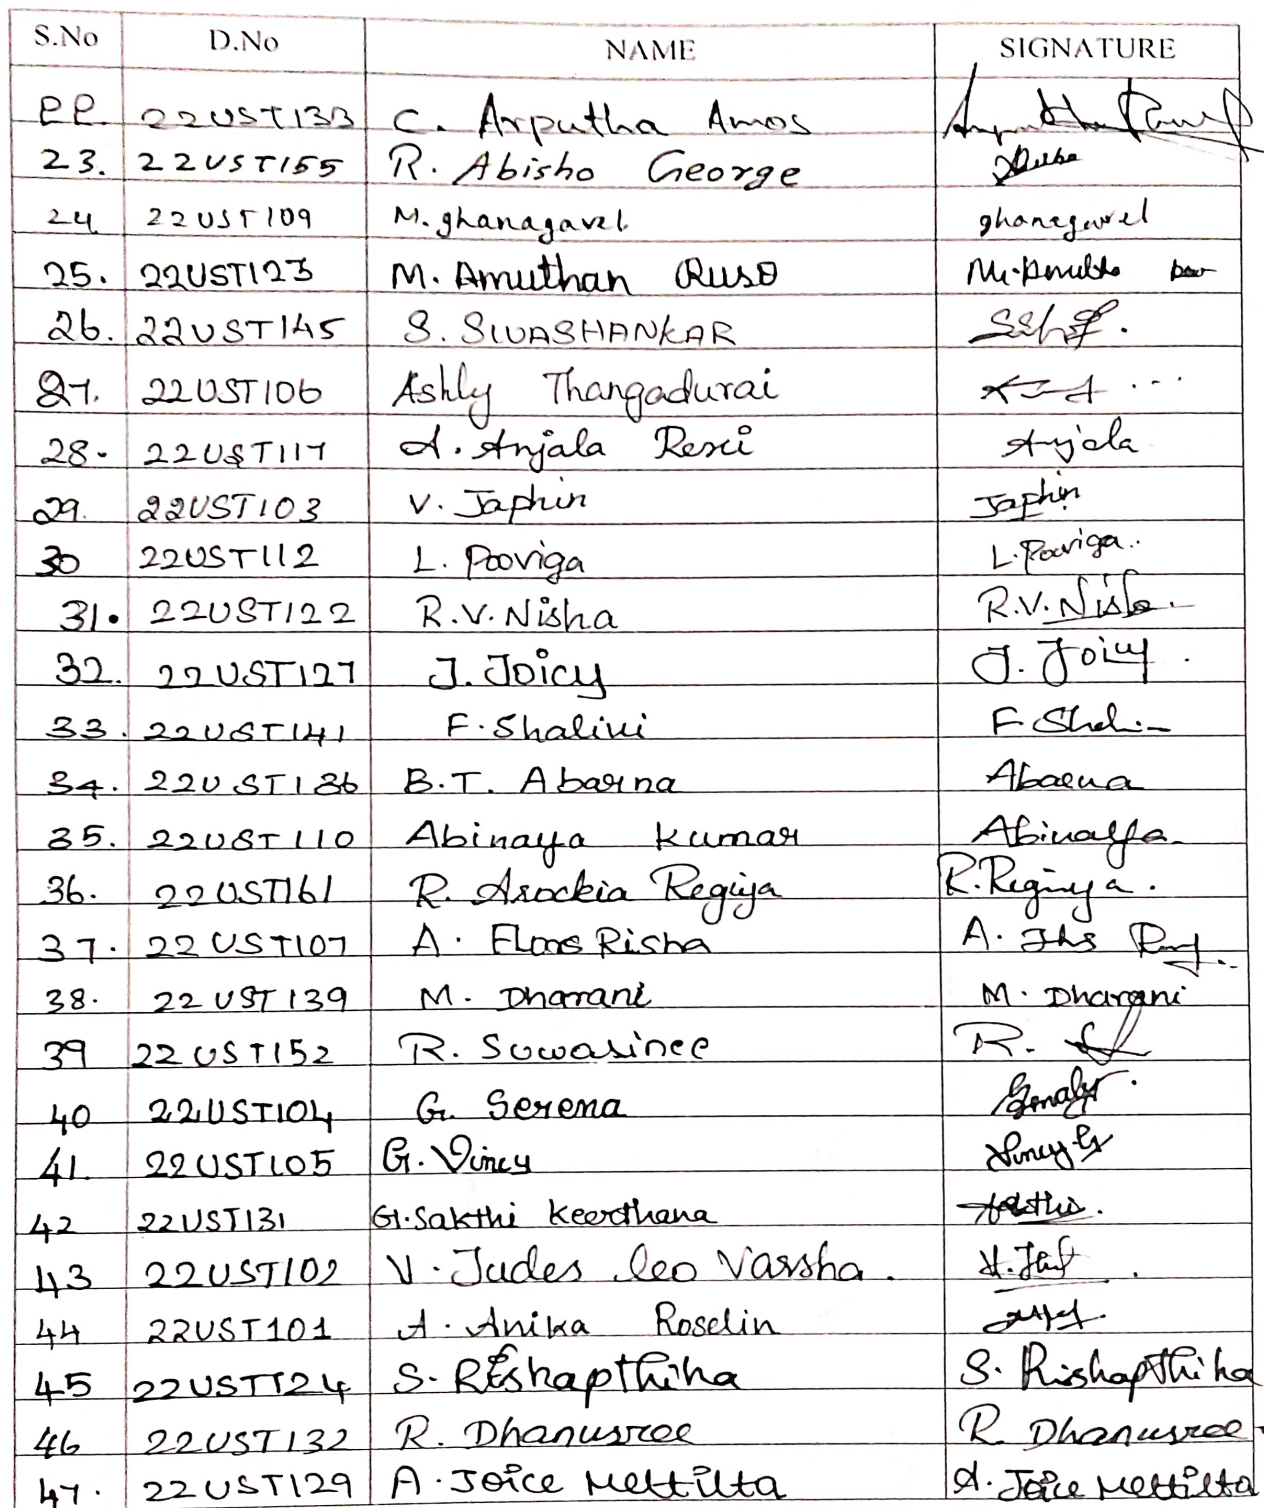 S.No D.No NAME SIGNATURE
22. 22UST133 C. Arputha Amos
23. 22UST155 R. Abisho George
24 22UST109 M. ghanagavel ghanagavel
25. 22UST123 M. Amuthan Ruso
26. 22UST145 S. SIVASHANKAR
27. 22UST106 Ashly Thangadurai
28. 22UST117 A. Anjala Resci Anjala
29. 22UST103 V. Japhin Japhin
30 22UST112 L. Pooviga L. Pooviga..
31. 22UST122 R.V. Nisha R.V. Nisha.
32. 22UST127 J. Joicy J. Joicy.
33. 22UST141 F. Shalini F. Shalini
34. 22UST136 B.T. Abarna Abarna
35. 22UST110 Abinaya Kumar Abinaya
36. 22UST161 R. Arockia Regija R. Reginya.
37. 22UST107 A. Risha A.
38. 22UST139 M. Dharani M. Dharani
39 22UST152 R. Suwasinee R.
40 22UST104 G. Serena
41. 22UST105 G. Vincy Vincy G
42 22UST131 G. Sakthi Keerthana Sakthi.
43 22UST102 V. Judes leo Varsha.
44 22UST101 A. Anika Roselin
45 22UST124 S. Rishapthiha S. Rishapthiha
46 22UST132 R. Dhanusree R. Dhanusree
47. 22UST129 A. Joice Mettilta A. Joice Mettilta